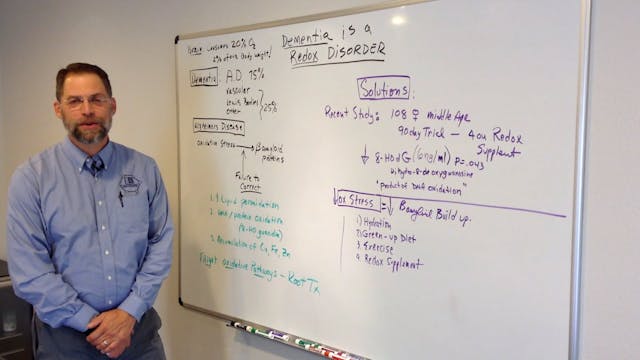 Dementia is a
Redox Disorder
Brain consumes 20% O2
2% of the body weight/
Dementia: A.D. 75%
vascular
Lewis Bodies
other
25%
Alzheimers Disease
oxidative stress → β amyloid
proteins
Failure to
Correct
1. ↑ Lipid peroxidation
2. DNA/protein oxidation
(8-HO guanosine)
3. Accumulation of Cu, Fe, Zn
Target oxidative Pathways - Root Tx
Solutions:
Recent Study: 108 ♀ middle Age
90 day Trial - 4 oz Redox
Supplement
↓ 8-HOdG (6ng/ml) P=.043
Dihydro-8-deoxyguanosine
"Product of DNA oxidation"
↓ ox Stress = ↓ Bamyloid Build up.
1) Hydration
2) Green-up Diet
3. Exercise
4. Redox Supplement